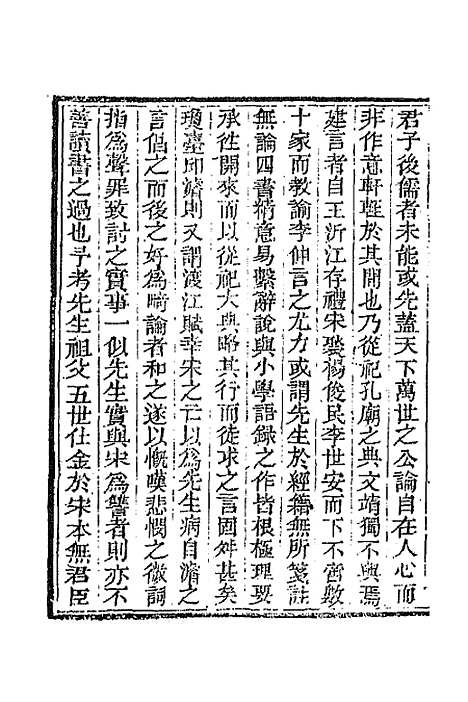 君子後儒者未能或先蓋天下萬世之公論自在人心而
非作意軒輊於其間也乃從祀孔廟之典文靖獨不與焉
建言者自王沂江存禮宋褧楊俊民李世安而下不啻數
十家而教諭李伸言之尤力或謂先生於經籍無所箋註
無論四書精意易繫辭說與小學語錄之作皆根極理要
承往開來而以從祀大典略其行而徒求之言固舛甚矣
瓊臺邱濬則又謂渡江賦幸宋之亡以為先生病自濬之
言倡之而後之好為畸論者和之遂以慨嘆悲憫之微詞
指為聲罪致討之實事一似先生實與宋為讐者則亦不
善讀書之過也予考先生祖父五世仕金於宋本無君臣